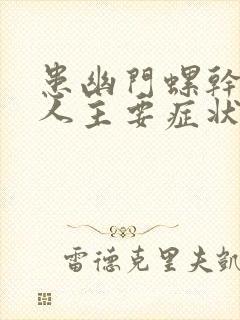 患幽門螺幹
人主要症狀
雷德克里夫凱